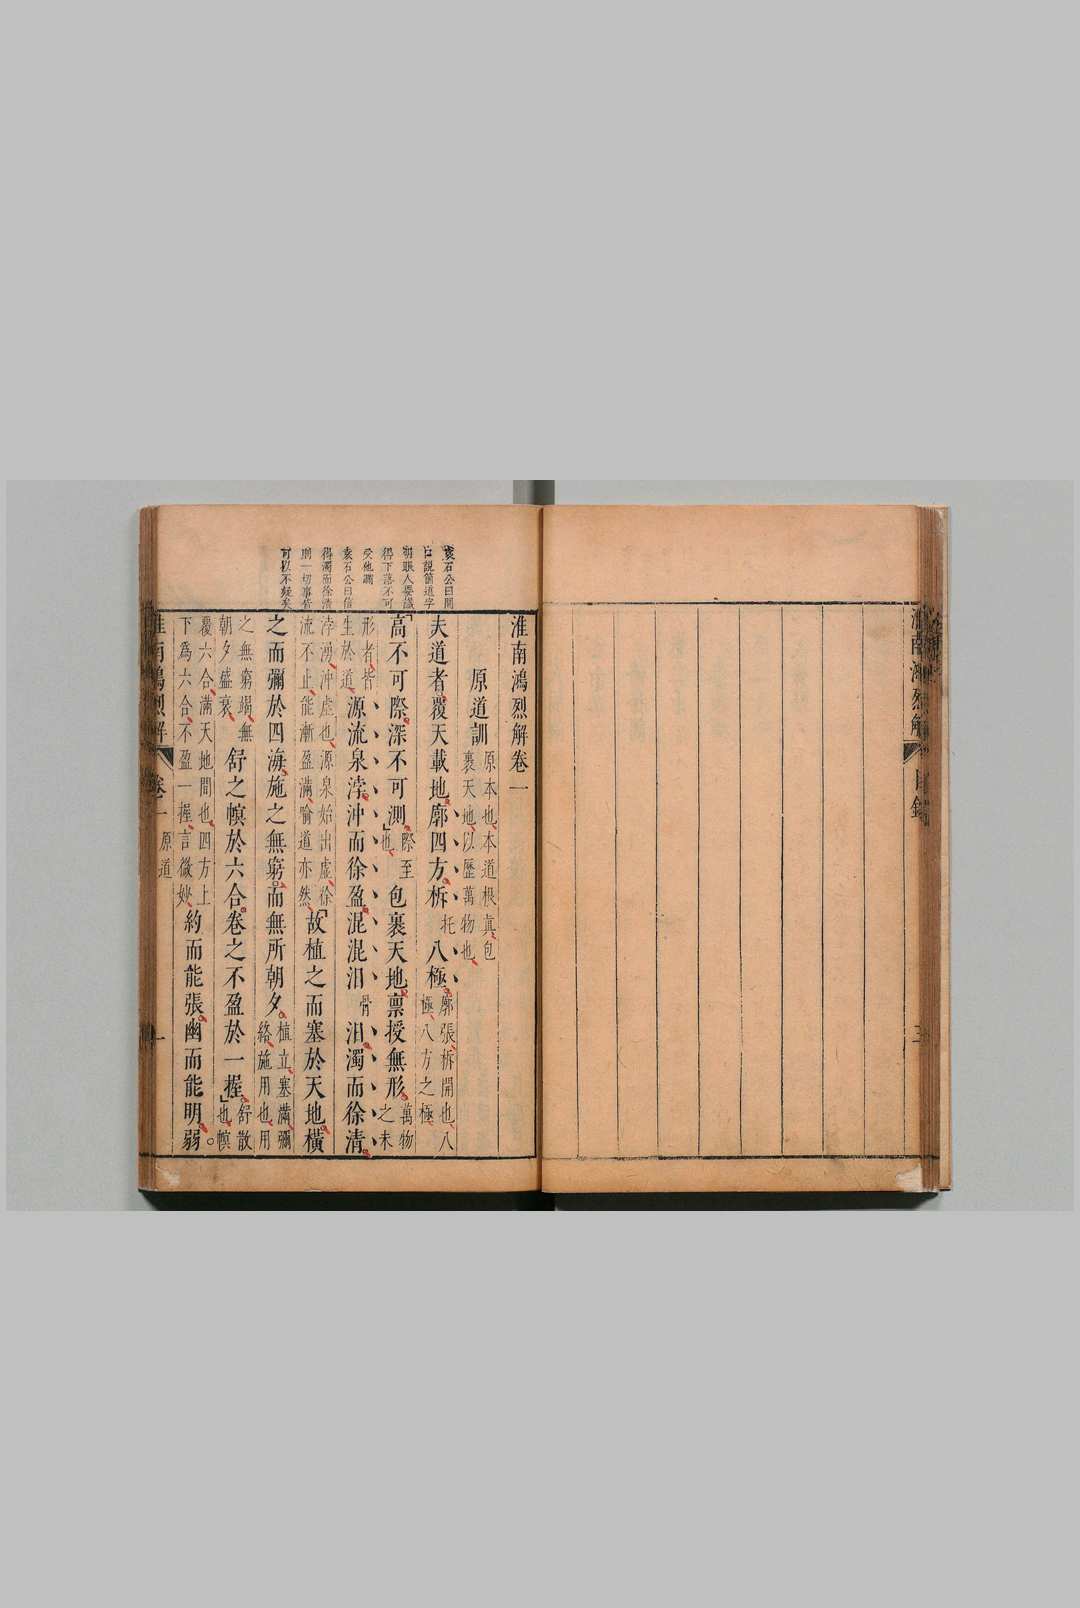 淮南鴻烈解
目錄
三
袁石公曰開
口說箇道字
明眼人要識
得下落不可
受他瞞
袁石公曰信
得濁而徐清
則一切事皆
可以不疑矣
淮南鴻烈解卷一
原道訓原本也本道根真包裹天地以歷萬物也
夫道者覆天載地廓四方柝托八極廓張柝開也八極八方之極
高不可際深不可測際至也包裹天地禀授無形萬物之未
形者皆生於道源流泉浡沖而徐盈混混汩骨汩濁而徐清
浡湧沖虛也源泉始出虛徐流不止能漸盈滿喻道亦然故植之而塞於天地橫
之而彌於四海施之無窮而無所朝夕植立塞滿彌絡施用也用
之無窮竭無朝夕盛衰舒之幎於六合卷之不盈於一握舒散也幎
覆六合滿天地間也四方上下為六合不盈一握言微妙約而能張幽而能明弱
淮南鴻烈解
卷一
原道
一